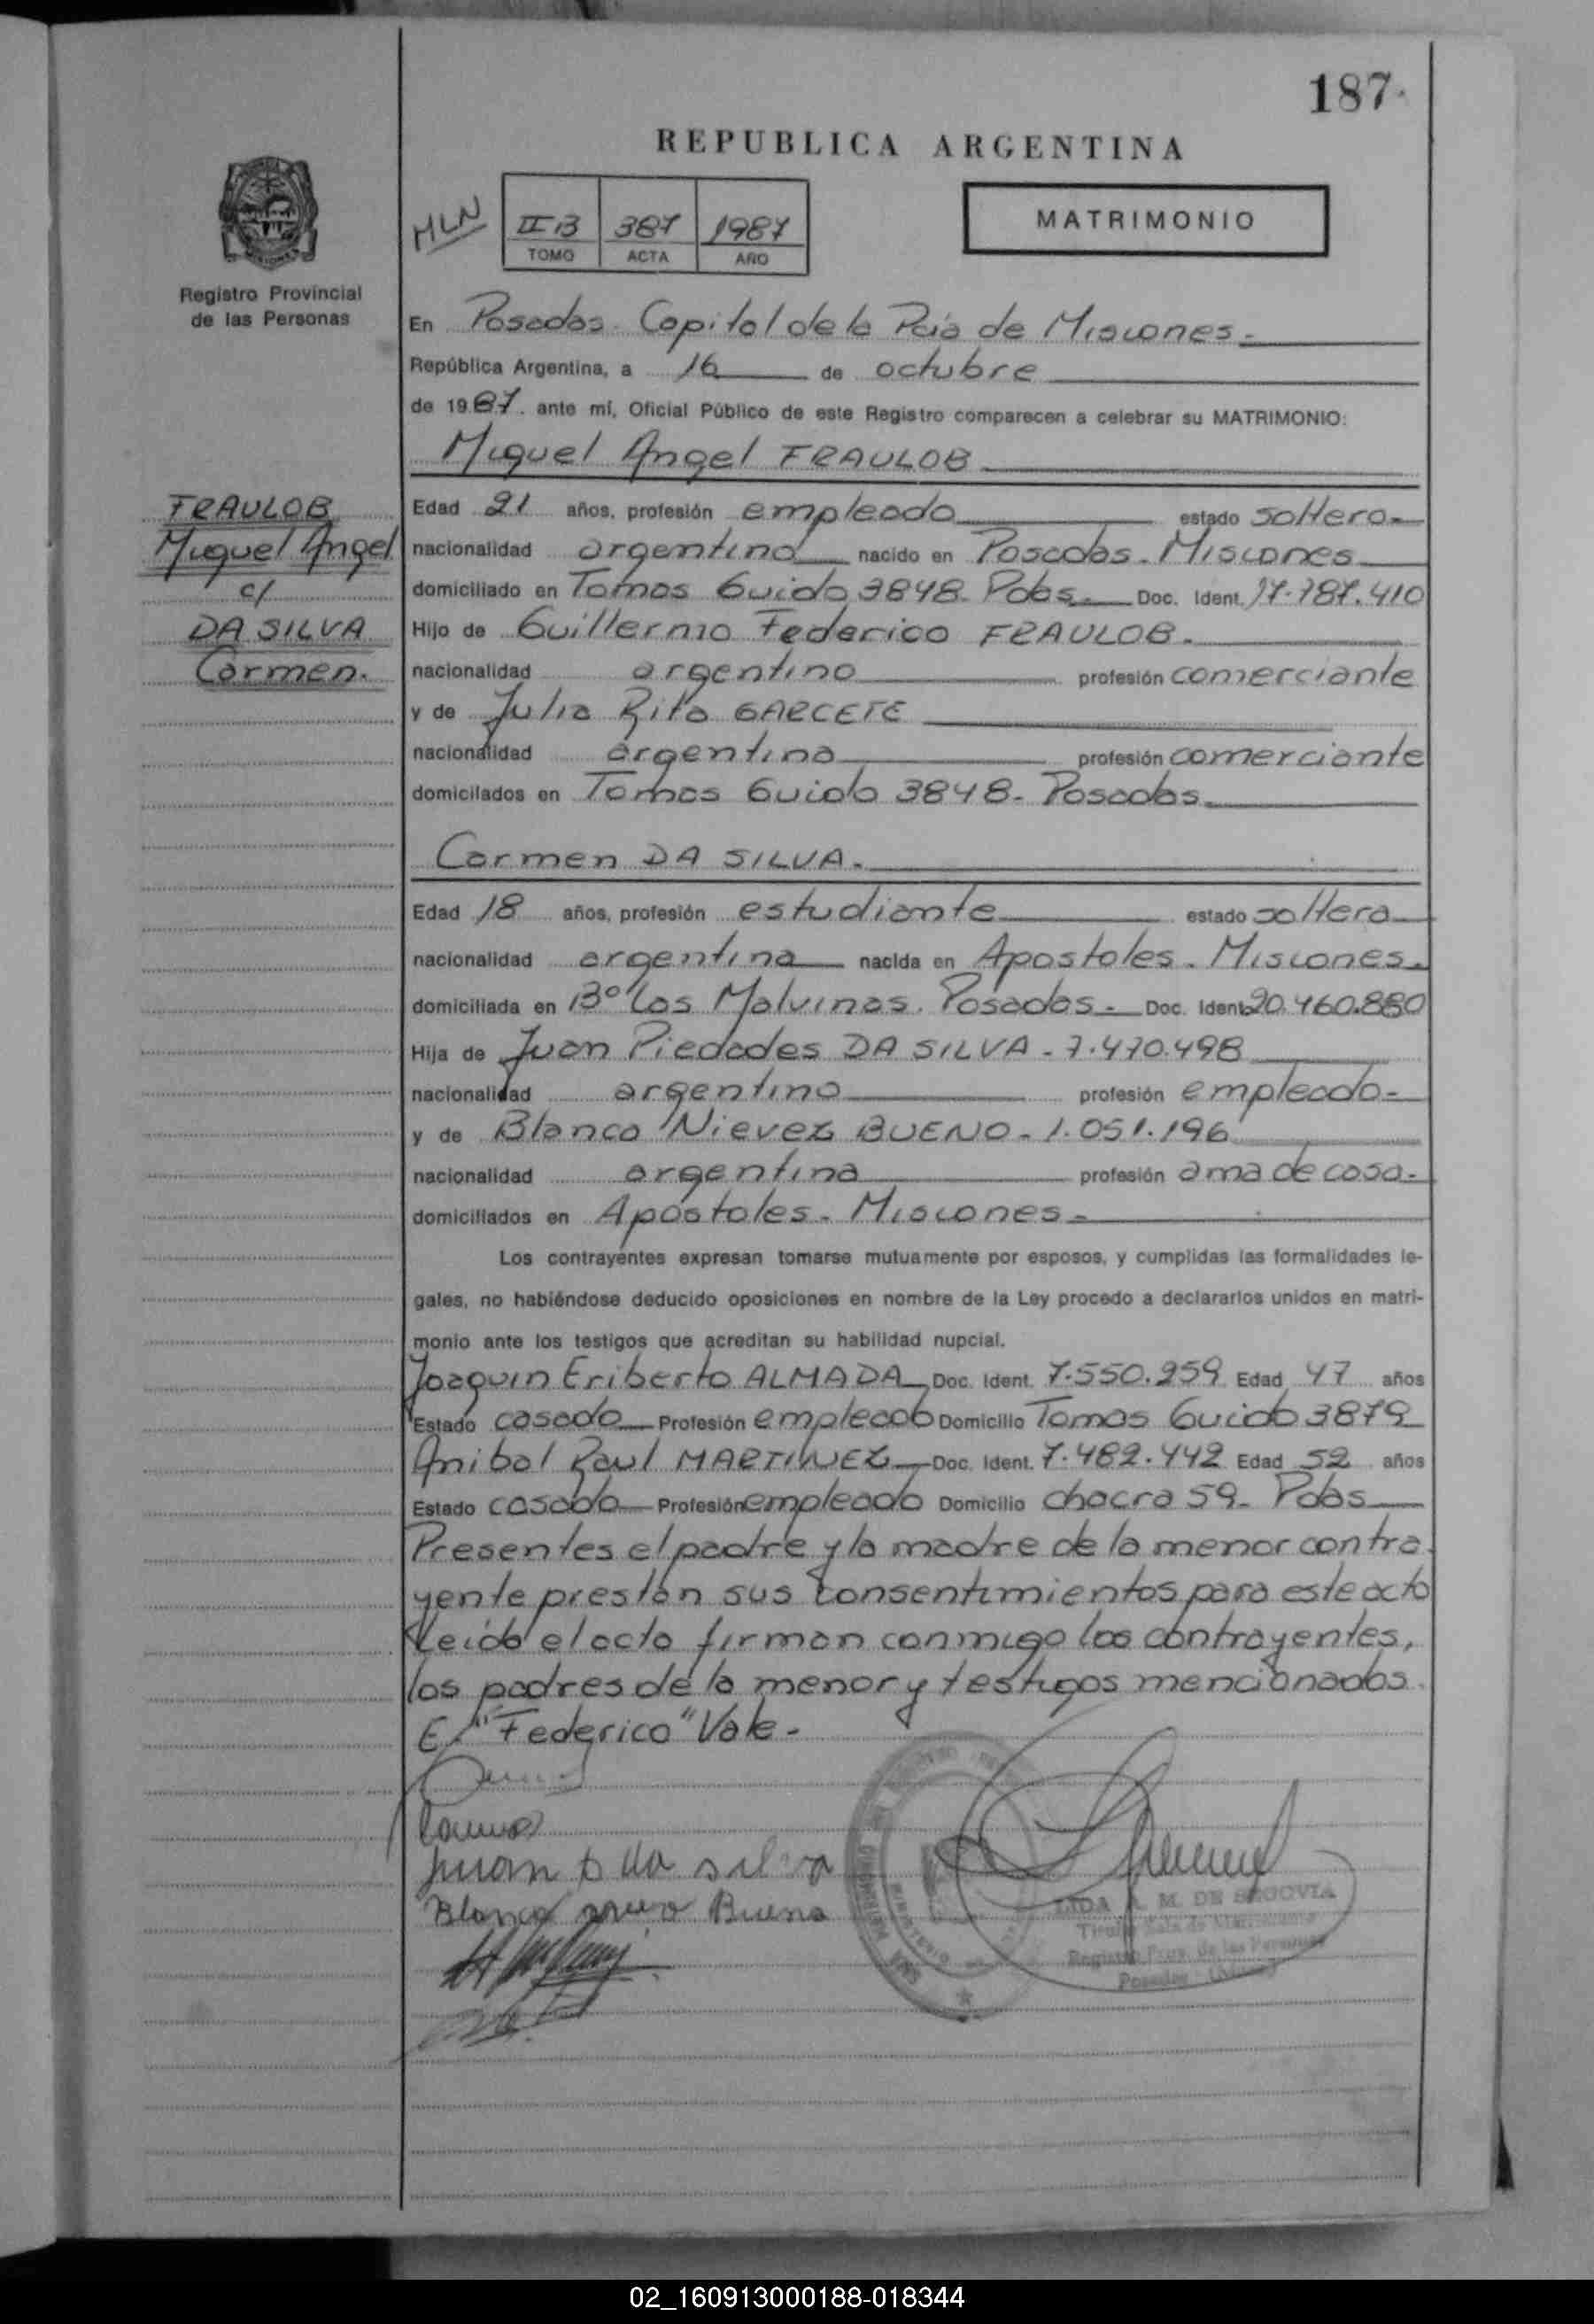 187.
REPUBLICA ARGENTINA
MLN
II B 387 1987
TOMO ACTA AÑO
MATRIMONIO
Registro Provincial
de las Personas
En Posadas. Capital de la Pcia de Misiones.
República Argentina, a 16 de octubre
de 1987. ante mí, Oficial Público de este Registro comparecen a celebrar su MATRIMONIO:
Miguel Angel FRAULOB
FRAULOB
Miguel Angel
c/
DA SILVA
Carmen.
Edad 21 años, profesión empleado estado soltero.
nacionalidad argentino nacido en Posadas. Misiones
domiciliado en Tomas Guido 3848. Pdas. Doc. Ident. 17.787.410
Hijo de Guillermo Federico FRAULOB.
nacionalidad argentino profesión comerciante
y de Julia Rita GARCETE
nacionalidad argentina profesión comerciante
domicilados en Tomas Guido 3848. Posadas
Carmen DA SILVA.
Edad 18 años, profesión estudiante estado soltera
nacionalidad argentina nacida en Apostoles. Misiones.
domiciliada en Bº Las Malvinas. Posadas. Doc. Ident. 20.460.880
Hija de Juan Piedades DA SILVA - 7.470.498
nacionalidad argentino profesión empleado-
y de Blanca Nievez BUENO - 1.051.196
nacionalidad argentina profesión ama de casa.
domiciliados en Apostoles. Misiones.
Los contrayentes expresan tomarse mutuamente por esposos, y cumplidas las formalidades le-
gales, no habiéndose deducido oposiciones en nombre de la Ley procedo a declararlos unidos en matri-
monio ante los testigos que acreditan su habilidad nupcial.
Joaquin Eriberto ALMADA Doc. Ident. 7.550.259 Edad 47 años
Estado casado Profesión empleado Domicilio Tomas Guido 3879
Anibal Raul MARTINEZ Doc. Ident. 7.482.442 Edad 52 años
Estado casado Profesión empleado Domicilio chacra 59. Pdas
Presentes el padre y la madre de la menor contra
yente prestan sus consentimientos para este acto
Leido el acto firman conmigo los contrayentes,
los padres de la menor y testigos mencionados.
E/ "Federico" Vale-
Juan p da silva
Blanca Bueno
LIDA A. M. DE SEGOVIA
Registro Prov. de las Personas
02_160913000188-018344